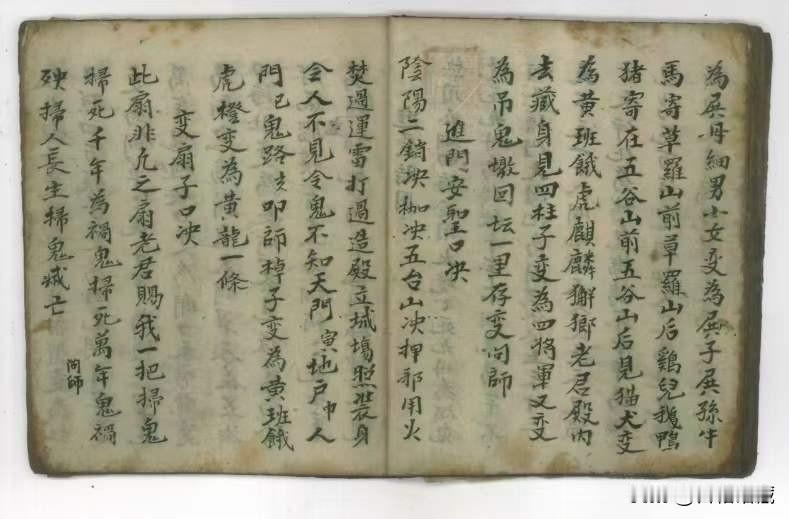 為屍母細男小女变為屍子屍孫牛
馬寄草羅山前草羅山后鷄兒鵝鴨
猪寄在五谷山前五谷山后見猫犬变
為黄班餓虎麒麟獬 老君殿内
去藏身見四柱子变為四將軍又变
為吊鬼 回坛一里存变问師
進門安聖口决
陰陽二 决枷决五台山决押邪用火
焚過運雷打過造殿立城塲照裝身
令人不見令鬼不知天門寅地戸申人
門巳鬼路亥叩師棹子变為黄班餓
虎橙变為黄龍一條
变扇子口决
此扇非凡之扇老君賜我一把掃鬼
掃死千年為禍鬼掃死萬年鬼禍
殃掃人長生掃鬼滅亡
问師